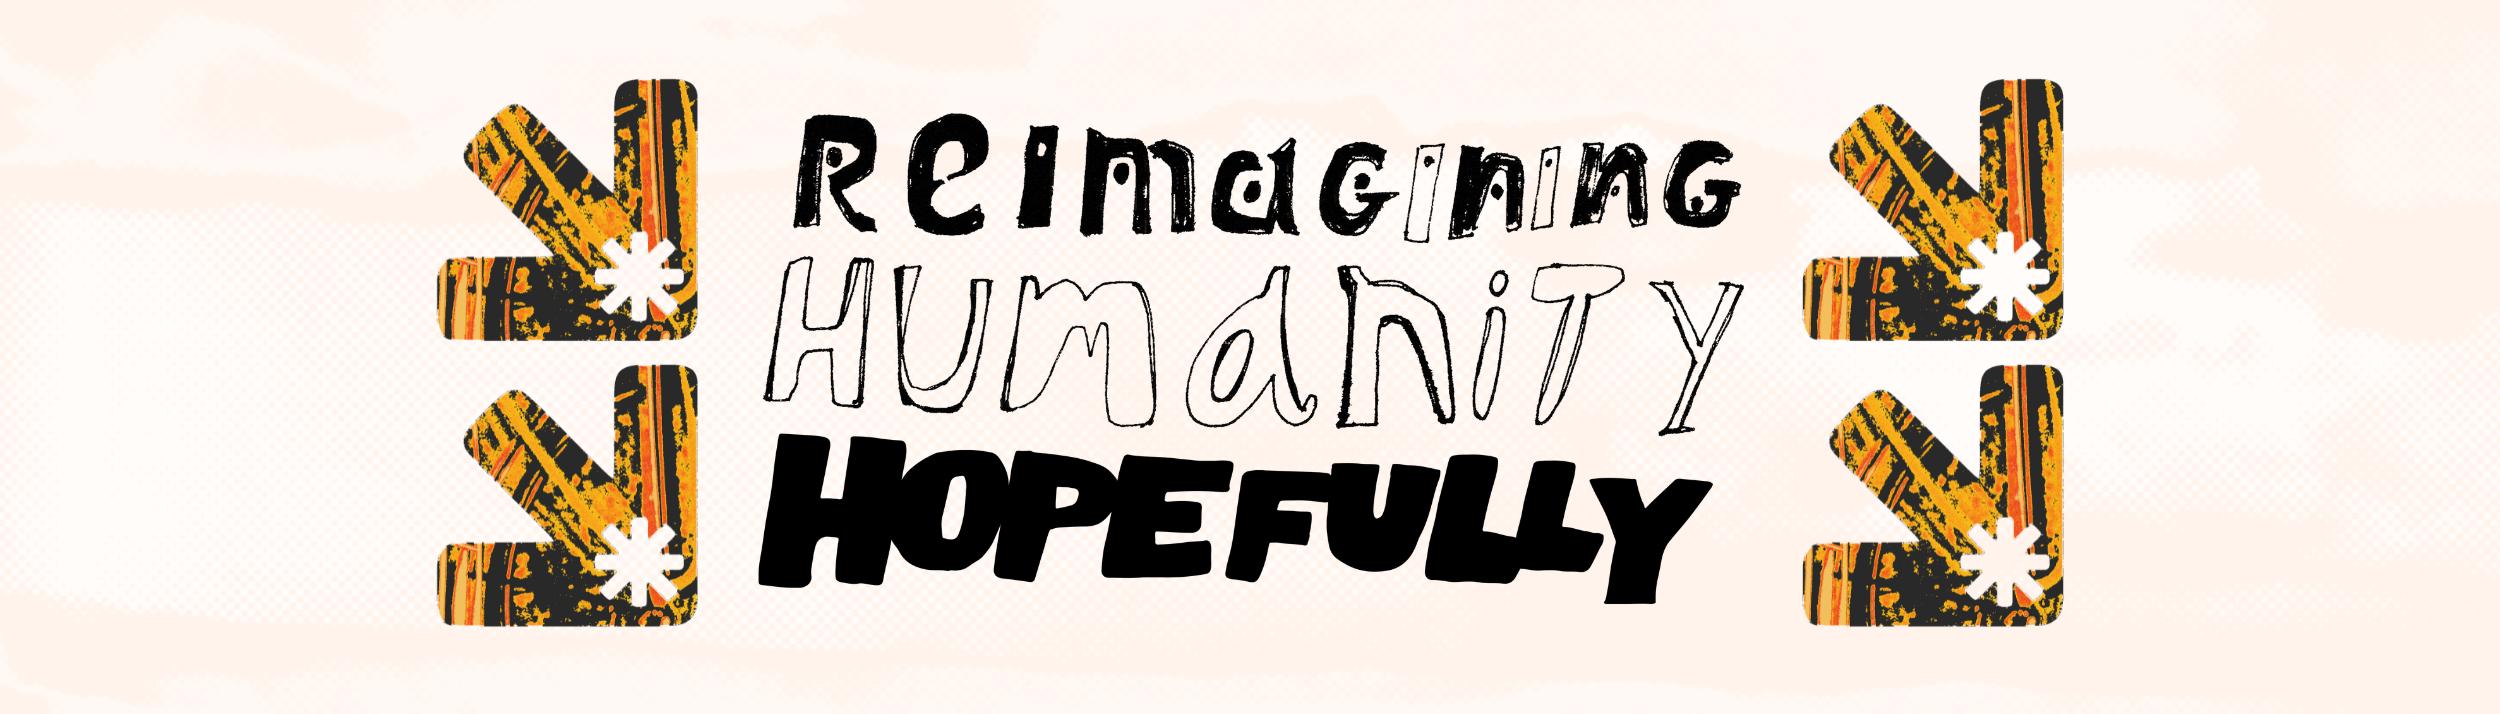 REIMAGINING
HUMANITY
HOPEFULLY